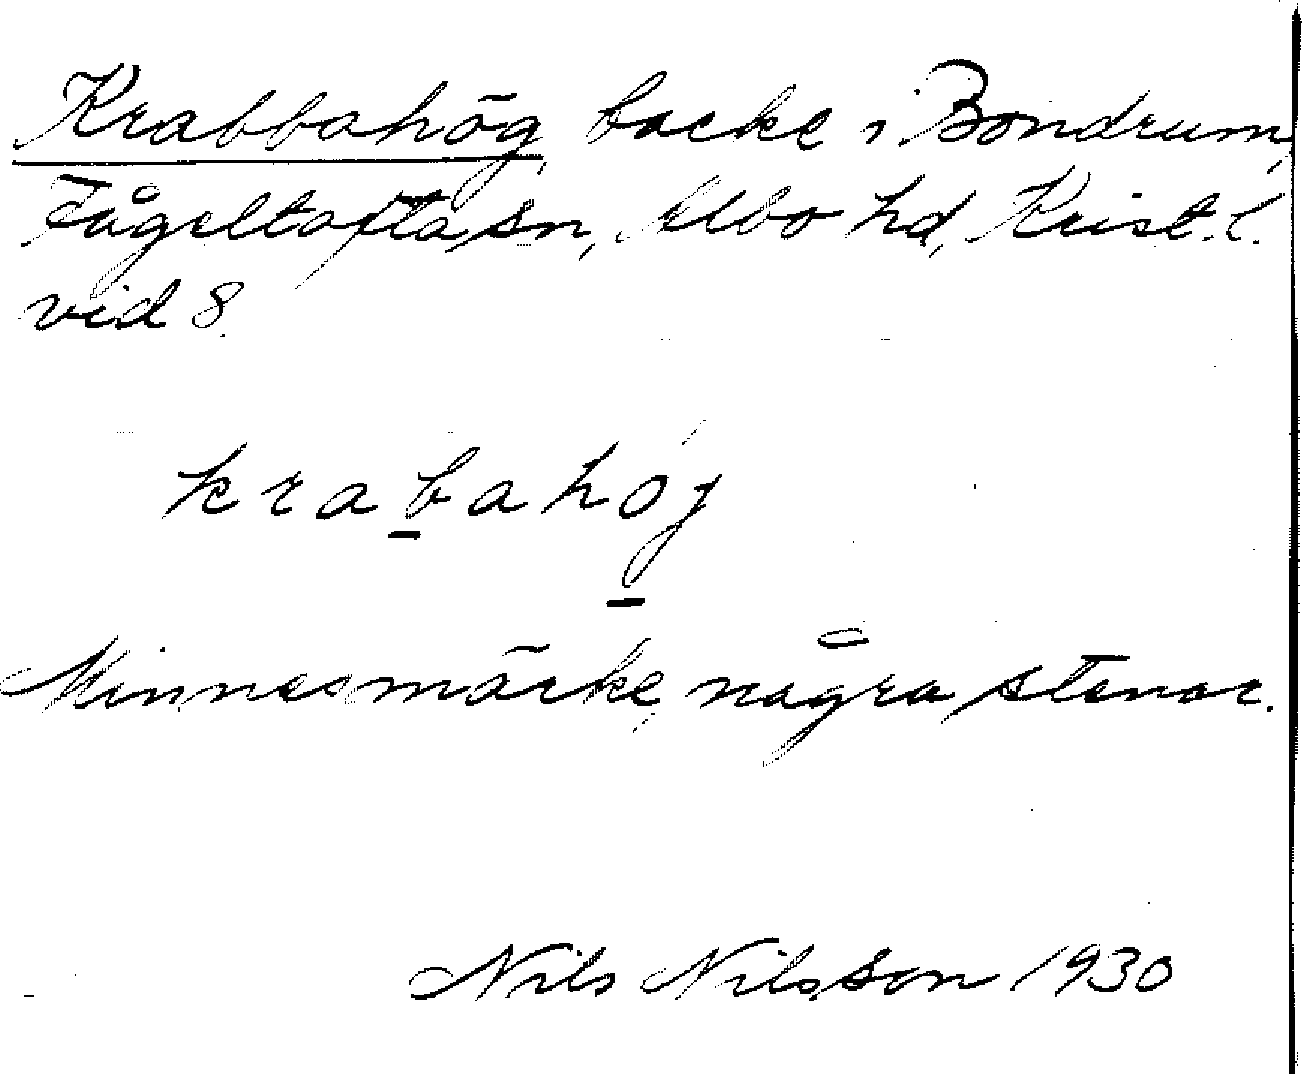 Krabbahög, backe i Bondrum,
Fågeltofta sn, Albo hd, Krist. l.
vid 8.
krabahöj
Minnesmärke, några stenar.
Nils Nilsson 1930